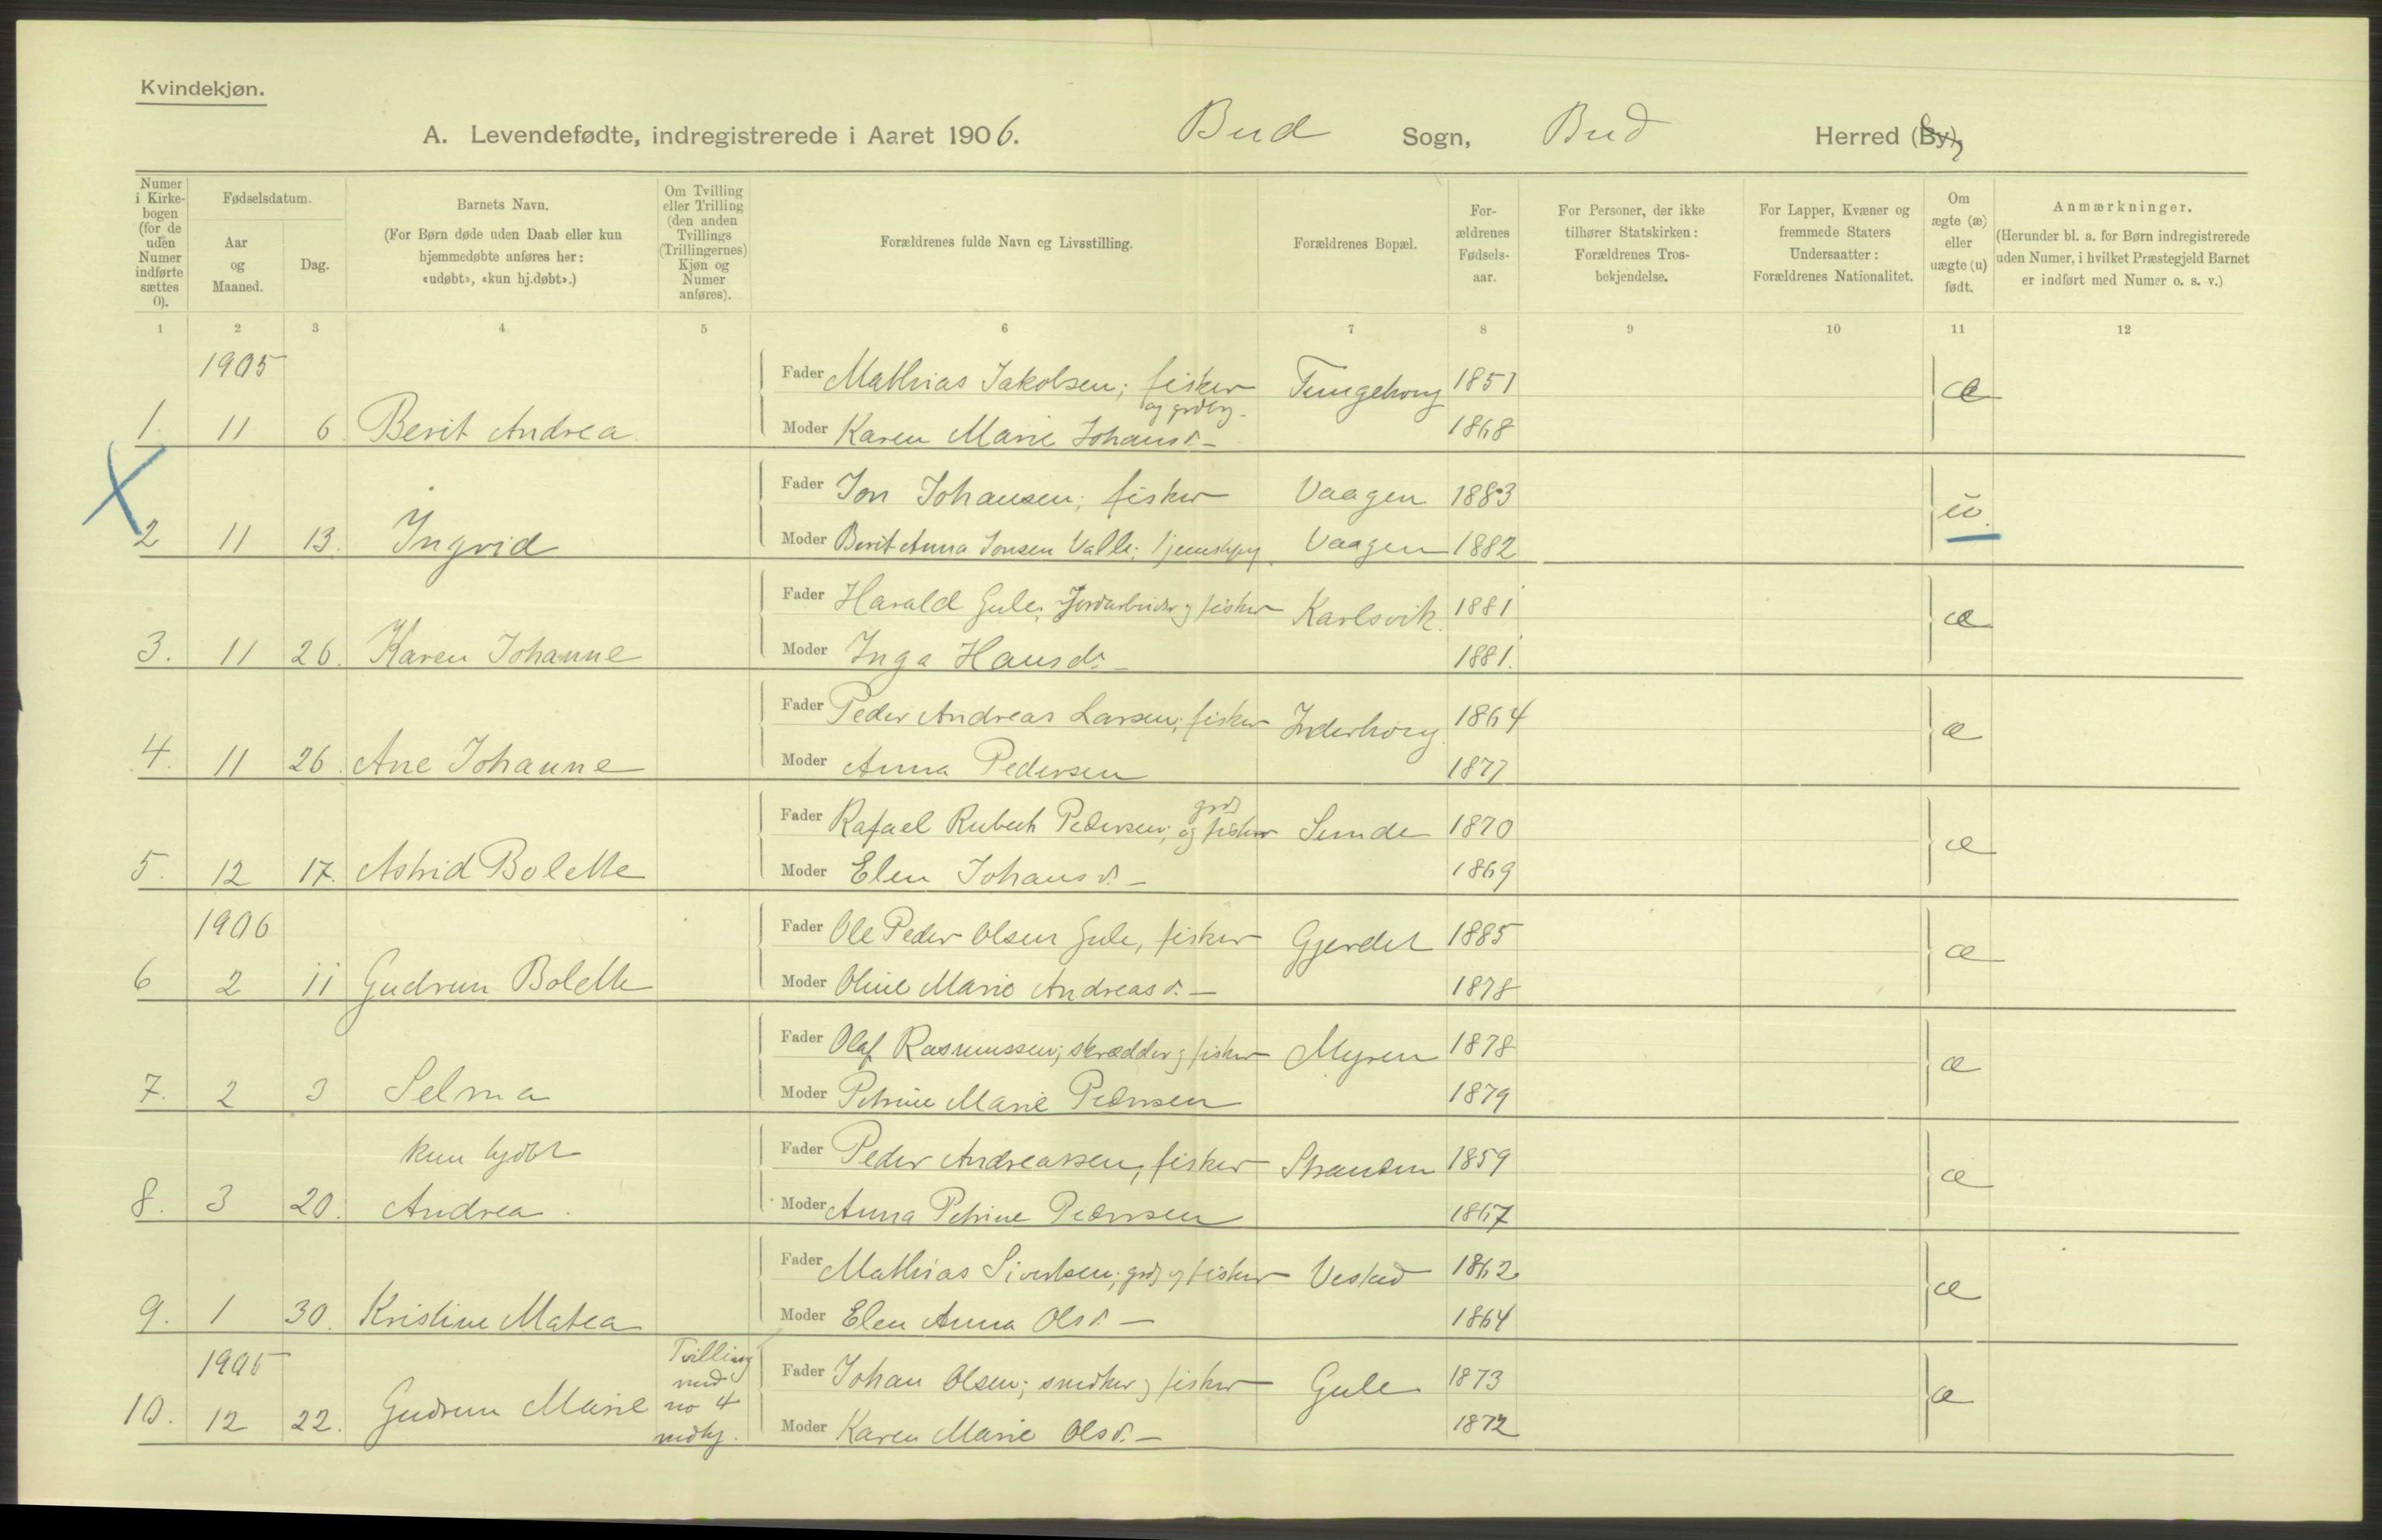 Kvindekjøn.
A. Levendefødte, indregistrerede i Aaret 1906. Bud Sogn, Bud Herred (By),
Numer i Kirkebogen (for de uden Numer indførte sættes 0).
Fødselsdatum.
Aar og Maaned.
Dag.
Barnets Navn.
(For Børn døde uden Daab eller kun hjemmedøbte anføres her: «udøbt», «kun hj.døbt».)
Om Tvilling eller Trilling (den anden Tvillings (Trillingernes) Kjøn og Numer anføres).
Forældrenes fulde Navn og Livsstilling.
Forældrenes Bopæl.
For-ældrenes Fødsels-aar.
For Personer, der ikke tilhører Statskirken: Forældrenes Tros-bekjendelse.
For Lapper, Kvæner og fremmede Staters Undersaatter: Forældrenes Nationalitet.
Om ægte (æ) eller uægte (u) født.
Anmærkninger.
(Herunder bl. a. for Børn indregistrerede uden Numer, i hvilket Præstegjeld Barnet er indført med Numer o. s. v.)
1 2 3 4 5 6 7 8 9 10 11 12
1905
Fader Mathias Jakobsen; fisker 1851 æ
og grdbr.
1. 11 6 Berit Andrea Moder Karen Marie Johansd. – 1868
Fader Jon Johansen; fisker Vaagen 1883 u.
2 11 13. Ingrid Moder Berit Anna Jonsen Valle; Vaagen 1882
Fader Harald Gule; Jordarbeider og fisker Karlsvik 1881 æ
3. 11 26. Karen Johanne Moder Inga Hansd. – 1881.
Fader Peder Andreas Larsen; fisker 1864 æ
4. 11 26. Ane Johanne Moder Anna Pedersen 1877
grdbr
Fader Rafael Pedersen; og fisker Sunde 1870 æ
5. 12 17. Astrid Bolette Moder Elen Johansd. – 1869
1906
Fader Ole Peder Olsen Gule, fisker Gjerdet 1885 æ
6 2 11 Gudrun Bolette Moder Oline Marie Andreasd. – 1878
Fader Olaf Rasmussen; skrædder og fisker Myren 1878 æ
7. 2 3 Selma Moder Petrine Marie Pedersen 1879
kun hjdbt
Fader Peder Andreassen, fisker Stranden 1859 æ
8. 3 20. Andrea. Moder Anna Petrine Pedersen 1867
Fader Mathias Sivertsen; grdbr og fisker Vestad 1862 æ
9. 1 30. Kristine Matea Moder Elen Anna Olsd. – 1864
1905 Tvilling
Fader Johan Olsen; snedker og fisker Gule 1873 æ
med
10. 12 22. Gudrun Marie no 4
mdkj. Moder Karen Marie Olsd. – 1872